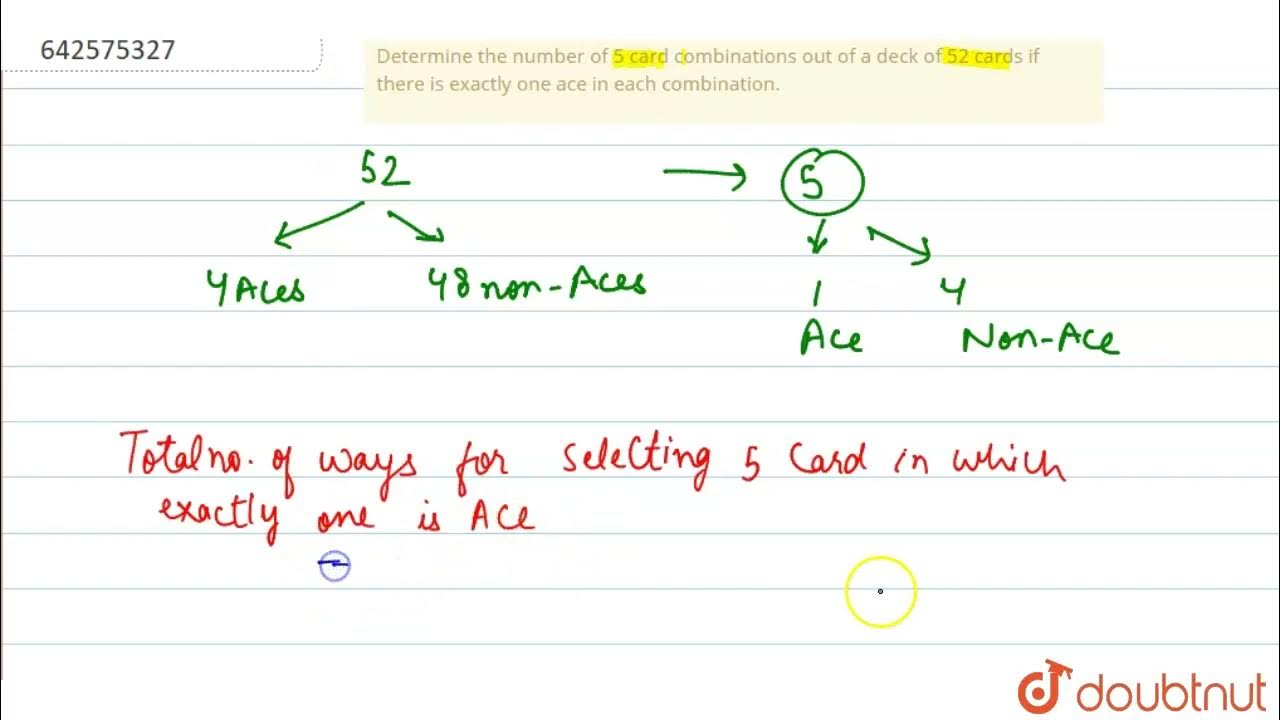 642575327
Determine the number of 5 card combinations out of a deck of 52 cards if
there is exactly one ace in each combination.
52
5
4 Aces
48 non-Aces
1
4
Ace
Non-Ace
Total no. of ways for selecting 5 Card in which
exactly one is Ace
=
doubtnut